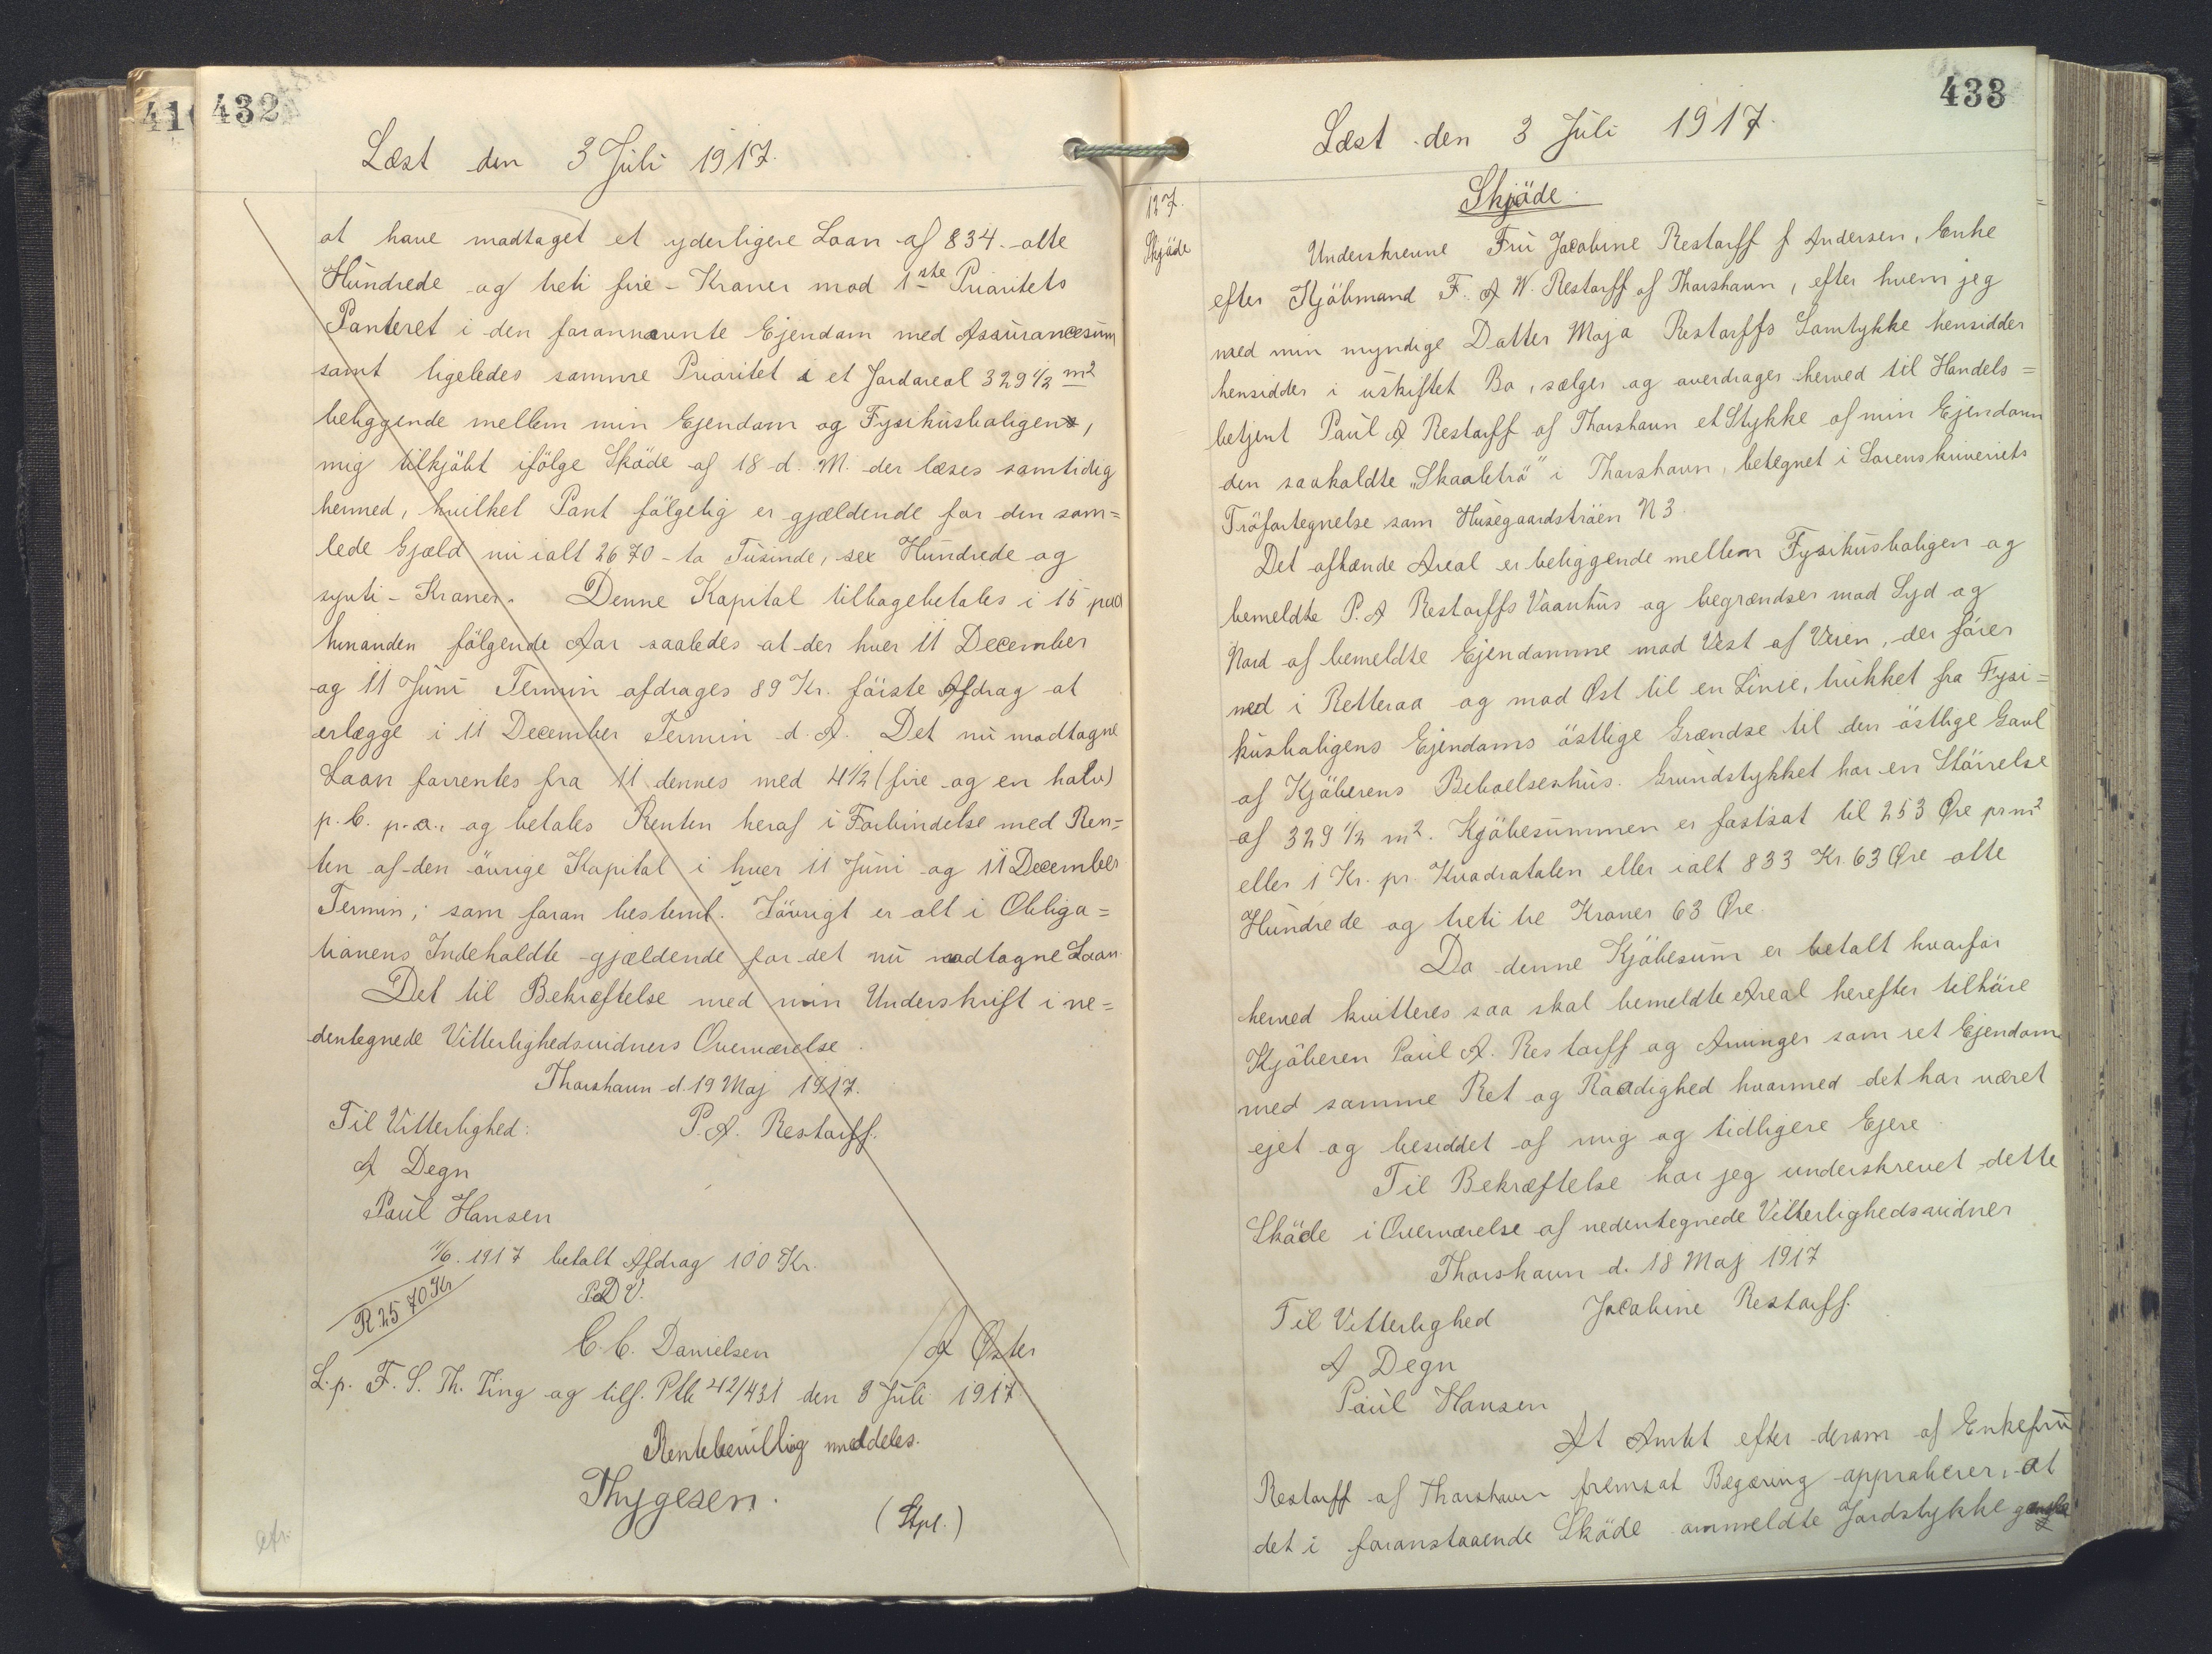 410
432
Læst den 3 Juli 1917.
at have modtaget et yderligere Laan af 834 - otte
Hundrede og treti fire - Kroner mod 1ste Prioritets
Panteret i den forannævnte Ejendom med Assurancesum
samt ligeledes samme Prioritet i et Jordareal 329 1/2 m2
beliggende mellem min Ejendom og Fysikusboligen,
mig tilkjöbt ifölge Sköde af 18 d. M. der læses samtidig
hermed, hvilket Pant fölgelig er gjældende for den sam=
lede Gjæld nu ialt 2670 - to Tusinde, sex Hundrede og
syvti - Kroner. Denne Kapital tilbagebetales i 15 paa
hinanden fölgende Aar saaledes at der hver 11 December
og 11 Juni Termin afdrages 89 Kr. förste Afdrag at
erlægge i 11 December Termin d. A. Det nu modtagne
Laan forrentes fra 11 dennes med 4 1/2 (fire og en halv)
p. C. p. a., og betales Renten heraf i Forbindelse med Ren=
ten af den övrige Kapital i hver 11 Juni og 11 December
Termin; som foran bestemt. Iövrigt er alt i Obliga=
tionens Indeholdte gjældende for det nu modtagne Laan.
Det til Bekræftelse med min Underskrift i ne=
dentegnede Vitterlighedsvidners Overværelse.
Thorshavn d. 19 Maj 1917.
Til Vitterlighed: P. A. Restorff.
A Degn
Paul Hansen
11/6. 1917 betalt Afdrag 100 Kr.
R 2570 Kr
P.D V.
C. C. Danielsen / A Öster
L. p. F. S. Th. Ting og tilf. Ptb 42/431 den 3 Juli 1917
Rentebevilling meddeles.
Thygesen.
(Stpl.)
afr.
433
Læst den 3 Juli 1917.
127.
Skjöde
Skjöde.
Underskrevne Fru Jacobine Restorff f Andersen, Enke
efter Kjöbmand F. A W. Restorff af Thorshavn, efter hvem jeg
med min myndige Datter Maja Restorffs Samtykke hensidder
hensidder i uskiftet Bo, sælger og overdrager herved til Handels=
betjent Paul A Restorff af Thorshavn et Stykke af min Ejendom
den saakaldte "Skaaletrö" i Thorshavn, betegnet i Sorenskriveriets
Tröfortegnelse som Husegaardströen N 3.
Det afhænde Areal er beliggende mellem Fysikusboligen og
bemeldte P. A Restorffs Vaanhus og begrændses mod Syd og
Nord af bemeldte Ejendomme mod Vest af Veien, der förer
ned i Retteraa og mod Öst til en Linie, trukket fra Fysi=
kusboligens Ejendoms östlige Grændse til den östlige Gavl
af Kjöberens Beboelseshus. Grundstykket har en Störrelse
af 329 1/2 m2. Kjöbesummen er fastsat til 253 Øre pr m2
eller 1 Kr. pr. Kvadratalen eller ialt 833 Kr. 63 Øre otte
Hundrede og treti tre Kroner 63 Øre.
Da denne Kjöbesum er betalt hvorfor
herved kvitteres saa skal bemeldte Areal herefter tilhöre
Kjöberen Paul A. Restorff og Arvinger som ret Ejendom
med samme Ret og Raadighed hvormed det har været
ejet og besiddet af mig og tidligere Ejere.
Til Bekræftelse har jeg underskrevet dette
Sköde i Overværelse af nedentegnede Vitterlighedsvidner
Thorshavn d. 18 Maj 1917
Til Vitterlighed Jacobine Restorff.
A Degn
Paul Hansen
At Amtet efter derom af Enkefru
Restorff af Thorshavn fremsat Begæring approberer, at
det i foranstaaende Sköde ommeldte Jordstykke